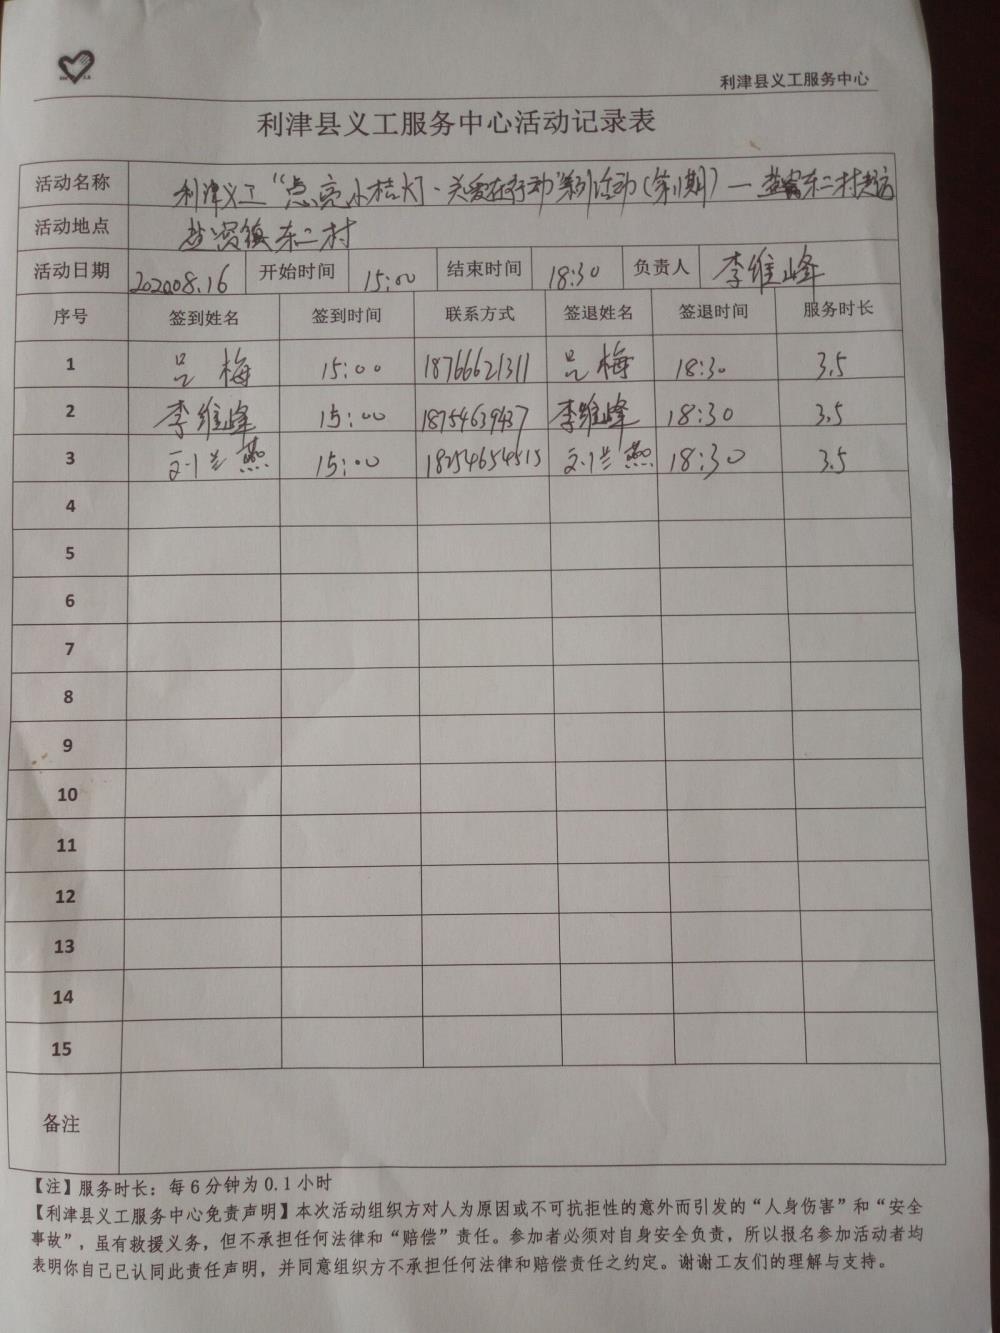 利津县义工服务中心
利津县义工服务中心活动记录表
活动名称 利津义工“点亮小桔灯·关爱在行动”系列活动(第11期)— 盐窝东二村走访
活动地点 盐窝镇东二村
活动日期 2020.08.16 开始时间 15:00 结束时间 18:30 负责人 李维峰
序号 签到姓名 签到时间 联系方式 签退姓名 签退时间 服务时长
1 吕梅 15:00 18766621311 吕梅 18:30 3.5
2 李维峰 15:00 18754639437 李维峰 18:30 3.5
3 刘兰燕 15:00 18254654515 刘兰燕 18:30 3.5
4
5
6
7
8
9
10
11
12
13
14
15
备注
【注】服务时长：每6分钟为0.1小时
【利津县义工服务中心免责声明】本次活动组织方对人为原因或不可抗拒性的意外而引发的“人身伤害”和“安全
事故”，虽有救援义务，但不承担任何法律和“赔偿”责任。参加者必须对自身安全负责，所以报名参加活动者均
表明你自己已认同此责任声明，并同意组织方不承担任何法律和赔偿责任之约定。谢谢工友们的理解与支持。